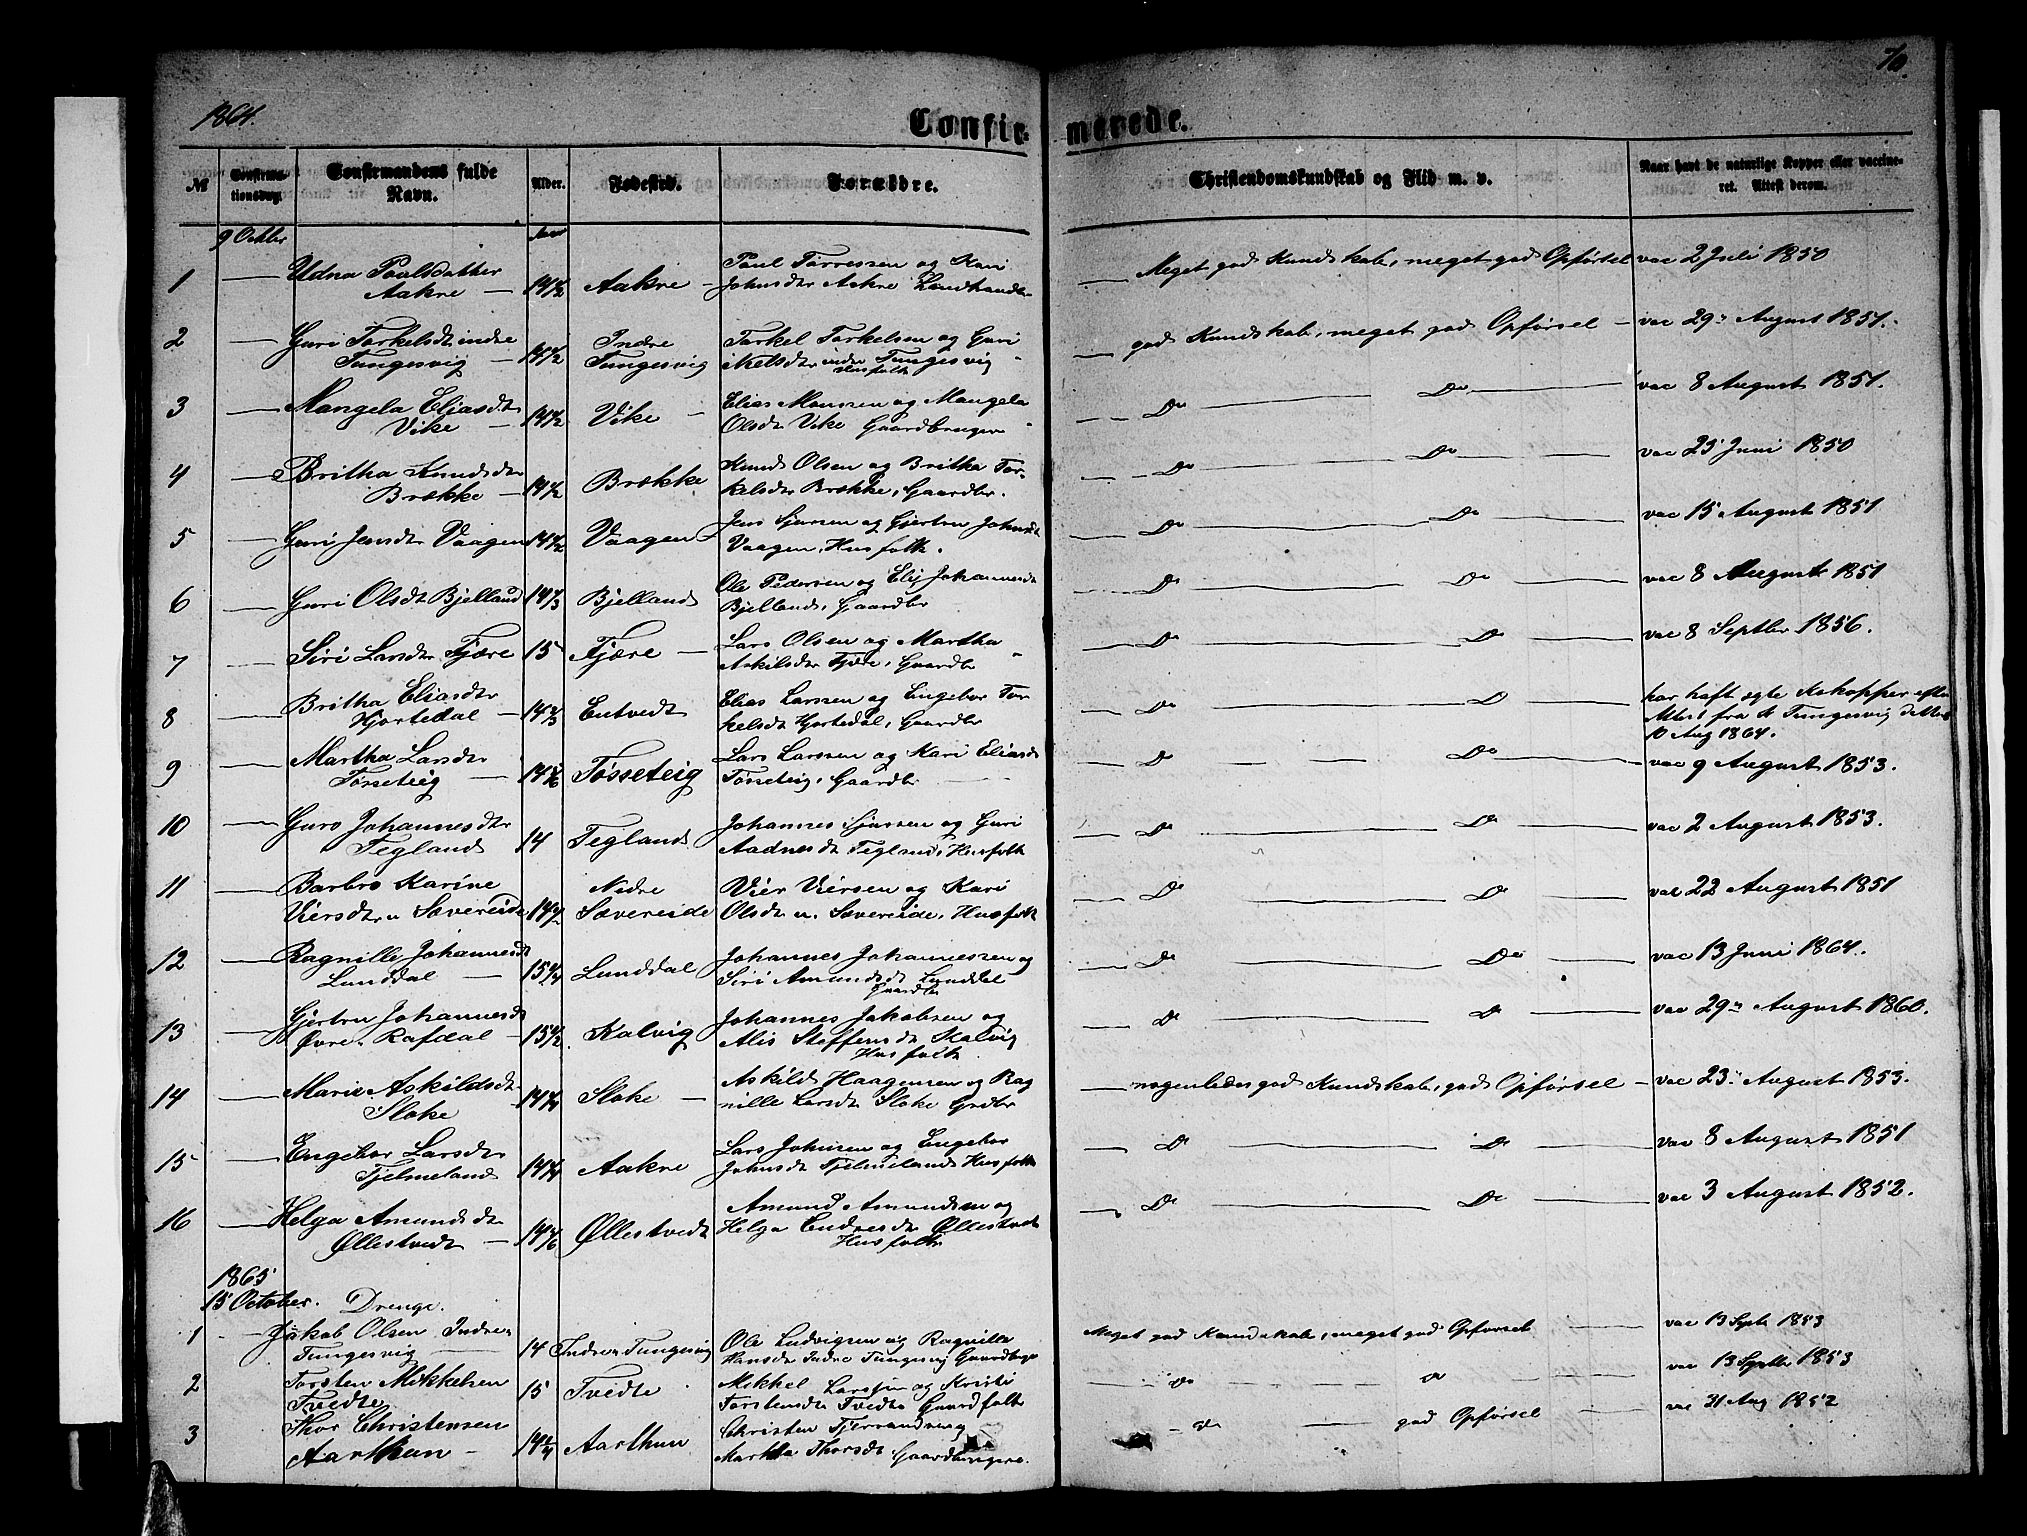 70.
1864.
Confir- merede.
№
Confirma-
tionsdag.
Confirmandens fulde
Navn.
Alder.
Fødested.
Forældre.
Christendomskundskab og Flid m. v.
Naar havt de naturlige Kopper eller vaccine-
ret. Attest derom.
9 Octbr
Aar
1 — Udna Paulsdatter
Aakre — 14 1/2 Aakre — Paul Tørressen og Kari
Johnsdtr Aakre
Meget god Kundskab, meget god Opførsel vac 2 Juli 1850
2 — Guri Torkelsdt indre
Tungesvig — 14 1/2 Indre
Tungesvig Torkel Torkelsen og Guri
Nielsdtr indre Tungesvig
Husfolk
god Kundskab, meget god Opførsel — vac 29de August 1851.
3 — Mangela Eliasdt
Vike — 14 1/2 Vike — Elias Monssen og Mangela
Olsdtr Vike Gaardbruger
Do — Do — vac 8 August 1851.
4 — Britha Knudsdtr
Brække — 14 1/2 Brække Knud Olsen og Britha Tor-
kelsdtr Brække, Gaardbr.
Do — Do — vac 25 Juni 1850
5 — Guri Jensdtr Vaagen 14 1/2 Vaagen Jens Sjursen og Gjertru Johnsdt
Vaagen, Husfolk.
Do — Do — vac 15 August 1851
6 — Guri Olsdt Bjelland 14 1/3 Bjelland Ole Pedersen og Eli Johannesdt
Bjelland, Gaardbr
Do — Do — vac 8 August 1851
7 — Siri Larsdtr Fjære 15 Fjære — Lars Olsen og Martha
Askilsdtr Fjære, Gaardbr
Do — Do — vac 8 Septbr 1856.
8 — Britha Eliasdtr
Hjortedal — 14 2/3 Entvedt Elias Larssen og Engebor Tor-
kelsdt Hjortedal, Gaardbr
Do — D — har haft egte Kokopper efter
Attest fra A Tungesvig datter
10 Aug 1864.
9 — Martha Larsdtr
Tøsseteig — 14 Tøsseteig Lars Larssen og Kari Eliasdt
Tøsseteig, Gaardbr
Do — Do — vac 9 August 1853.
10 — Guro Johannesdtr
Tegland 14 Tegland Johannes Sjursen og Guri
Aadnesdt Tegland, Husfolk
Do — Do — vac 2 August 1853.
11 — Barbro Karine
Viersdtr n Sævereide 14 1/2 Nedre
Sævereide Vier Viersen og Kari
Olsdt n. Sævereide, Husfolk
Do — Do — vac 22 August 1851
12 — Ragnille Johannesdt
Lunddal — 15 1/4 Lunddal Johannes Johannessen og
Siri Amundsdt Lunddal
Gaardbr
Do — Do — vac 13 Juni 1864.
13 — Gjertru Johannesdt
Øvre Rafdal — 15 1/2 Kalvig Johannes Jakobsen og
Alis Steffensdt Kalvig
Husfolk
Do — Do — vac 29de August 1860.
14 — Marie Askildsdt
Sloke 14 1/4 Sloke — Askild Haagensen og Rag
nille Larsdt Sloke Grdbr
— nogenledes god Kundskab, god Opførsel — vac 23de August 1853.
15 — Engebor Larsdtr
Tjelmeland 14 1/4 Aakre Lars Johnsen og Engebor
Johnsdt Tjelmeland Husfolk
Do — Do — vac 8 August 1851
16 — Helga Amundsdt
Øllestvedt — 14 1/6 Øllestvedt Amund Amundsen og
Helga Endresdt Øllestvedt
Husfolk
Do — Do — vac 3 August 1852.
1865
15 October. Drenge.
1 — Jakob Olsen Indre
Tungesvig — 14 Indre Tungesvig Ole Ludvigsen og Ragnille
Hansdt Indre Tungesvig Gaardbrgr
Meget god Kundskab, meget god Opførsel — vac 13 Sept 1853
2 Torsten Mikkelsen
Tvedte 15 Tvedte Mikkel Larssen og Kristi
Torstensdt Tvedte Gaardfolk
do — do — vac 13 Septbr 1853
3 Thor Christensen
Aarthun — 14 1/4 Aarthun Christen Tjerrandsen og
Martha Thorsdt Gaardbrugere.
do — god Opførsel — vac 21 Aug 1852